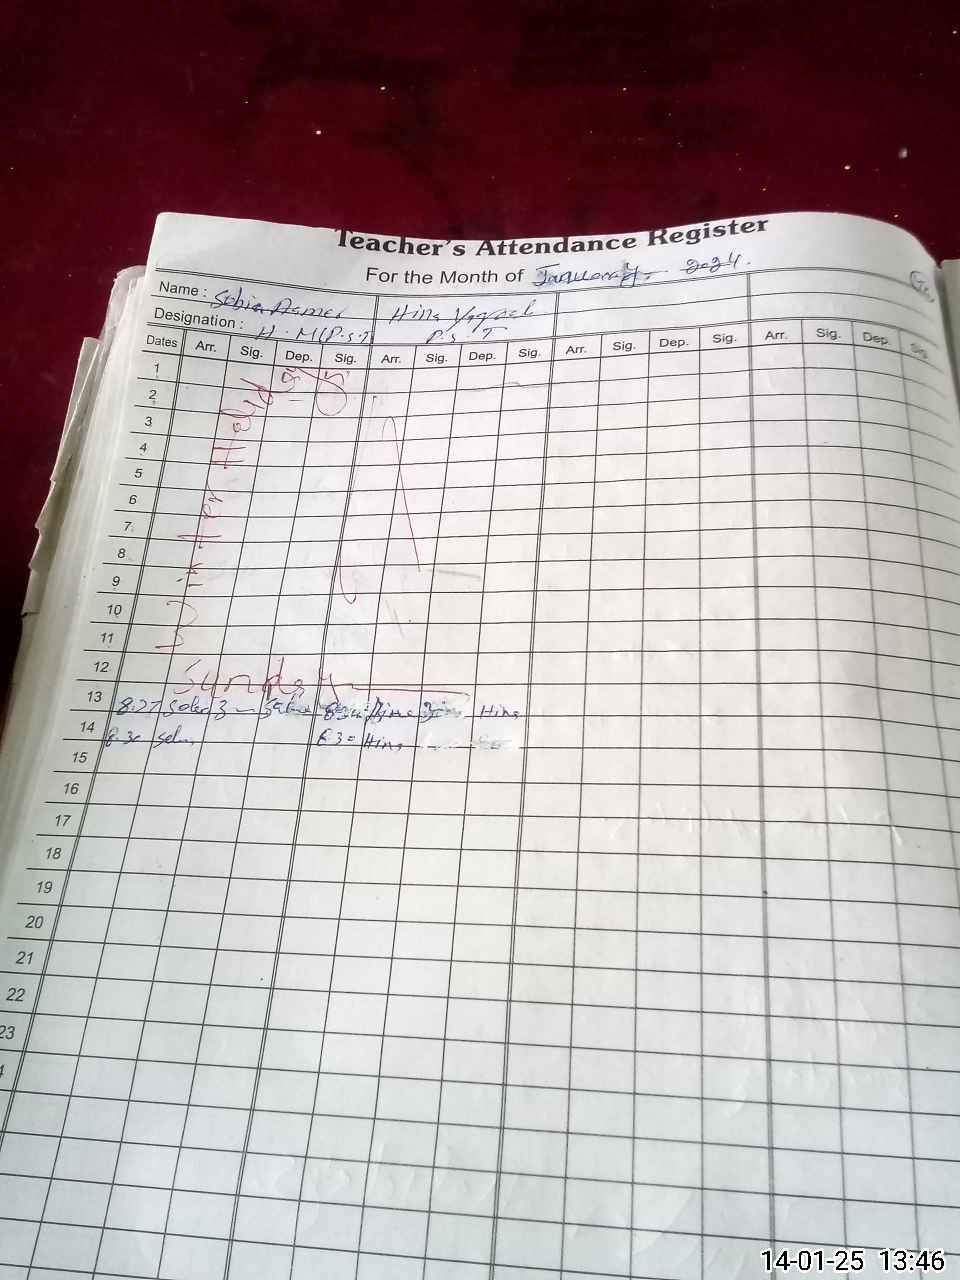 Teacher's Attendance Register
For the Month of January 2024.
Name : Sobia Hina
Designation : H.M(P.S.T) P.S.T
Dates Arr. Sig. Dep. Sig. Arr. Sig. Dep. Sig. Arr. Sig. Dep. Sig. Arr. Sig. Dep. Sig.
1
2
3
4
5
6
7
8
9
10
11
Winter Holiday
12 Sunday
13 8.27 Hina
14 8.30 8.30 Hina
15
16
17
18
19
20
21
22
23
14-01-25 13:46